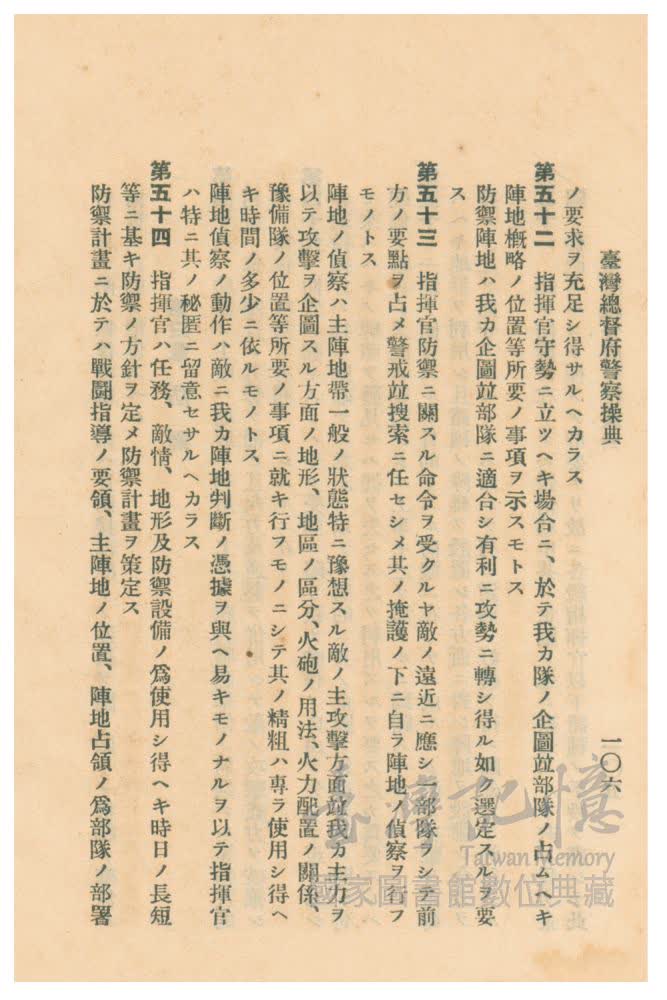 臺灣總督府警察操典
一〇六
ノ要求ヲ充足シ得サルヘカラス
第五十二　指揮官守勢ニ立ツヘキ場合ニ、於テ我カ隊ノ企圖竝部隊ノ占ムヘキ
陣地概略ノ位置等所要ノ事項ヲ示スモトス
防禦陣地ハ我カ企圖竝部隊ニ適合シ有利ニ攻勢ニ轉シ得ル如ク選定スルヲ要
ス
第五十三　指揮官防禦ニ關スル命令ヲ受クルヤ敵ノ遠近ニ應シ一部隊ヲシテ前
方ノ要點ヲ占メ警戒竝搜索ニ任セシメ其ノ掩護ノ下ニ自ラ陣地ノ偵察ヲ行フ
モノトス
陣地ノ偵察ハ主陣地帶一般ノ狀態特ニ豫想スル敵ノ主攻擊方面竝我カ主力ヲ
以テ攻擊ヲ企圖スル方面ノ地形、地區ノ區分、火砲ノ用法、火力配置ノ關係、
豫備隊ノ位置等所要ノ事項ニ就キ行フモノニシテ其ノ精粗ハ專ラ使用シ得ヘ
キ時間ノ多少ニ依ルモノトス
陣地偵察ノ動作ハ敵ニ我カ陣地判斷ノ憑據ヲ與ヘ易キモノナルヲ以テ指揮官
ハ特ニ其ノ秘匿ニ留意セサルヘカラス
第五十四　指揮官ハ任務、敵情、地形及防禦設備ノ爲使用シ得ヘキ時日ノ長短
等ニ基キ防禦ノ方針ヲ定メ防禦計畫ヲ策定ス
防禦計畫ニ於テハ戰鬪指導ノ要領、主陣地ノ位置、陣地占領ノ爲部隊ノ部署
臺灣記憶
Taiwan Memory
國家圖書館數位典藏